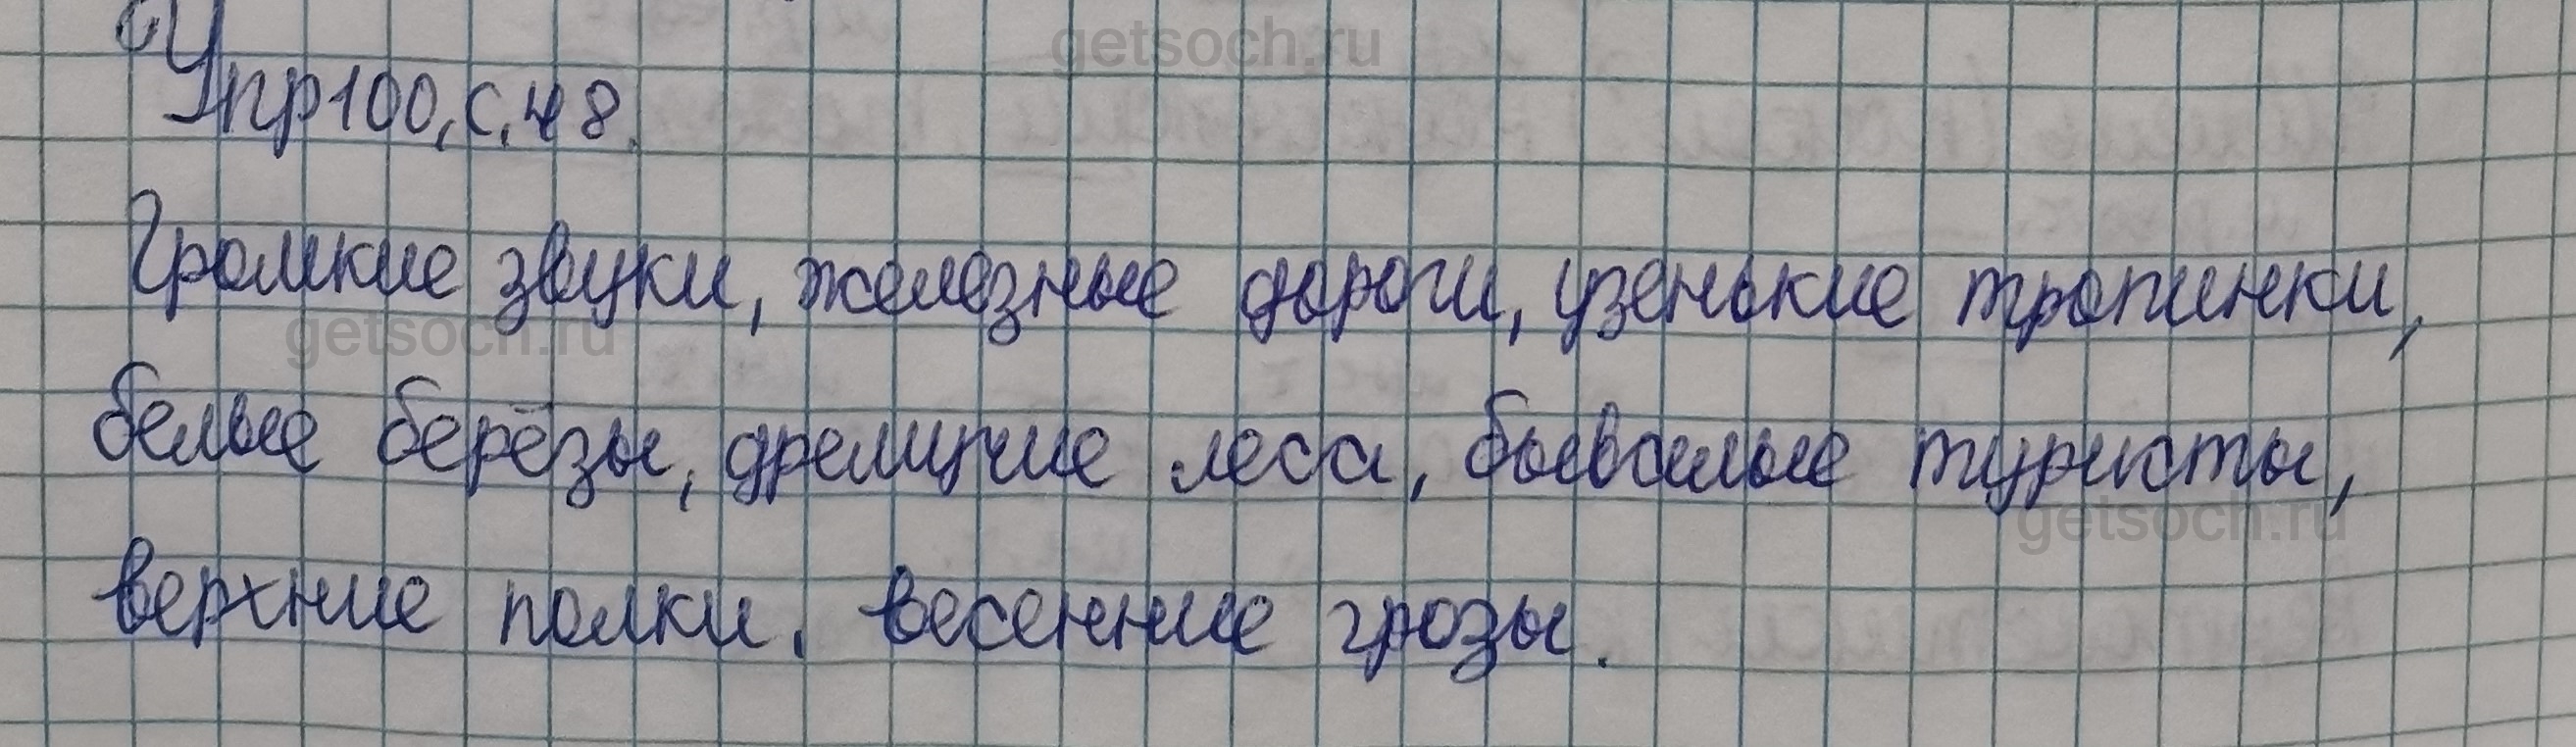 getsoch.ru
Упр100, с. 48.
Громкие звуки, железные дороги, узенькие тропинки,
getsoch.ru
белые берёзы, дремучие леса, бывалые туристы,
getsoch.ru
верхние полки, весенние грозы.